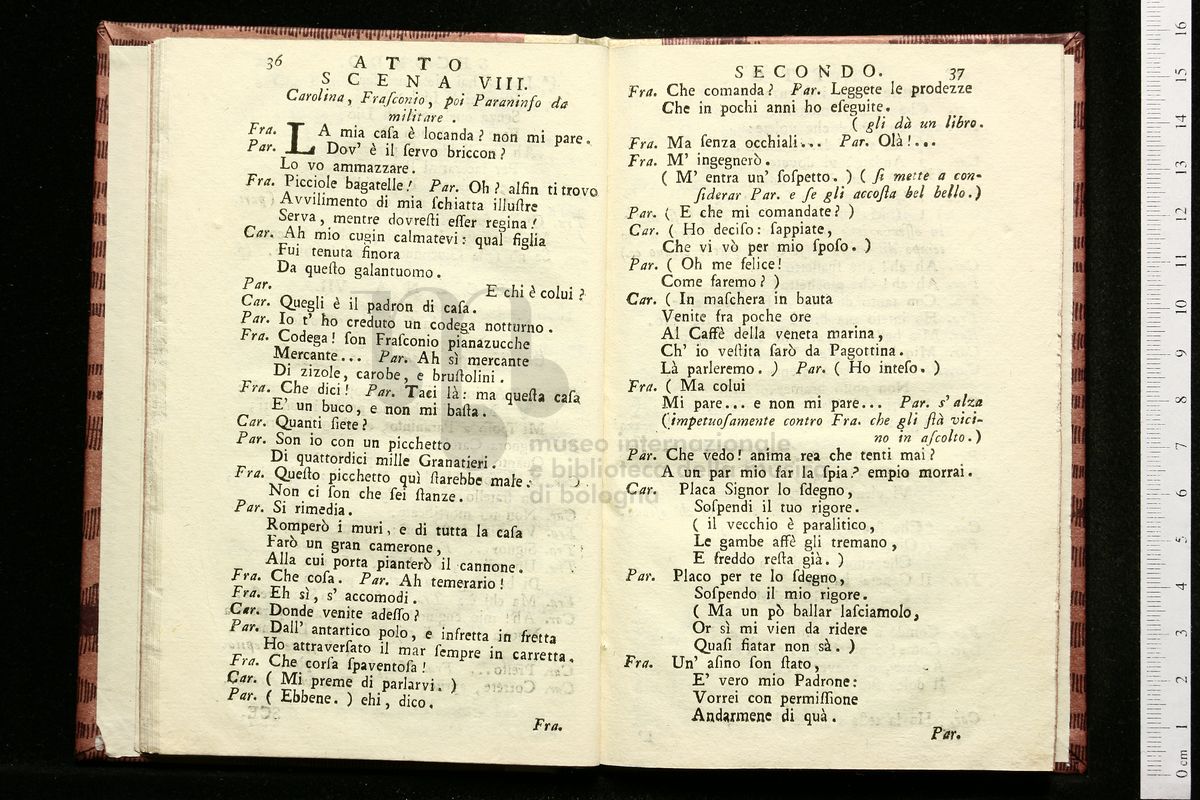 36
ATTO
SCENA VIII.
Carolina, Fraſconio, poi Paraninfo da
militare.
Fra. LA mia caſa è locanda? non mi pare.
Par. Dov' è il ſervo briccon?
Lo vo ammazzare.
Fra. Picciole bagatelle! Par. Oh? alfin ti trovo
Avvilimento di mia ſchiatta illuſtre
Serva, mentre dovreſti eſſer regina!
Car. Ah mio cugin calmatevi: qual figlia
Fui tenuta finora
Da queſto galantuomo.
Par. E chi è colui?
Car. Quegli è il padron di caſa.
Par. Io t' ho creduto un codega notturno.
Fra. Codega! ſon Fraſconio pianazucche
Mercante... Par. Ah sì mercante
Di zizole, carobe, e bruſtolini.
Fra. Che dici! Par. Taci là: ma queſta caſa
E' un buco, e non mi baſta.
Car. Quanti ſiete?
Par. Son io con un picchetto
Di quattordici mille Granatieri.
Fra. Queſto picchetto quì ſtarebbe male:
Non ci ſon che ſei ſtanze.
Par. Si rimedia.
Romperò i muri, e di tutta la caſa
Farò un gran camerone,
Alla cui porta pianterò il cannone.
Fra. Che coſa. Par. Ah temerario!
Fra. Eh sì, s' accomodi.
Car. Donde venite adeſſo?
Par. Dall' antartico polo, e infretta in fretta
Ho attraverſato il mar ſempre in carretta.
Fra. Che corſa ſpaventoſa!
Car. (Mi preme di parlarvi.)
Par. (Ebbene.) ehi, dico.
Fra.
SECONDO.
37
Fra. Che comanda? Par. Leggete le prodezze
Che in pochi anni ho eſeguite.
(gli dà un libro.
Fra. Ma ſenza occhiali... Par. Olà!...
Fra. M' ingegnerò.
(M' entra un' ſoſpetto.) (ſi mette a con-
ſiderar Par. e ſe gli accoſta bel bello.)
Par. (E che mi comandate?)
Car. (Ho deciſo: ſappiate,
Che vi vò per mio ſpoſo.)
Par. (Oh me felice!
Come faremo?)
Car. (In maſchera in bauta
Venite fra poche ore
Al Caffè della veneta marina,
Ch' io veſtita ſarò da Pagottina.
Là parleremo.) Par. (Ho inteſo.)
Fra. (Ma colui
Mi pare... e non mi pare... Par. s' alza
(impetuoſamente contro Fra. che gli ſtà vici-
no in aſcolto.)
Par. Che vedo! anima rea che tenti mai?
A un par mio far la ſpia? empio morrai.
Car. Placa Signor lo ſdegno,
Soſpendi il tuo rigore.
(il vecchio è paralitico,
Le gambe affè gli tremano,
E freddo reſta già.)
Par. Placo per te lo ſdegno,
Soſpendo il mio rigore.
(Ma un pò ballar laſciamolo,
Or sì mi vien da ridere
Quaſi fiatar non sà.)
Fra. Un' aſino ſon ſtato,
E' vero mio Padrone:
Vorrei con permiſſione
Andarmene di quà.
Par.
museo internazionale
e biblioteca della musica
di bologna
0 cm 1 2 3 4 5 6 7 8 9 10 11 12 13 14 15 16